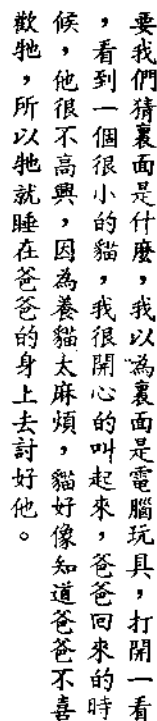 要我們猜裏面是什麼，我以為裏面是電腦玩具，打開一看
，看到一個很小的貓，我很開心的叫起來，爸爸回來的時
候，他很不高興，因為養貓太麻煩，貓好像知道爸爸不喜
歡牠，所以牠就睡在爸爸的身上去討好他。